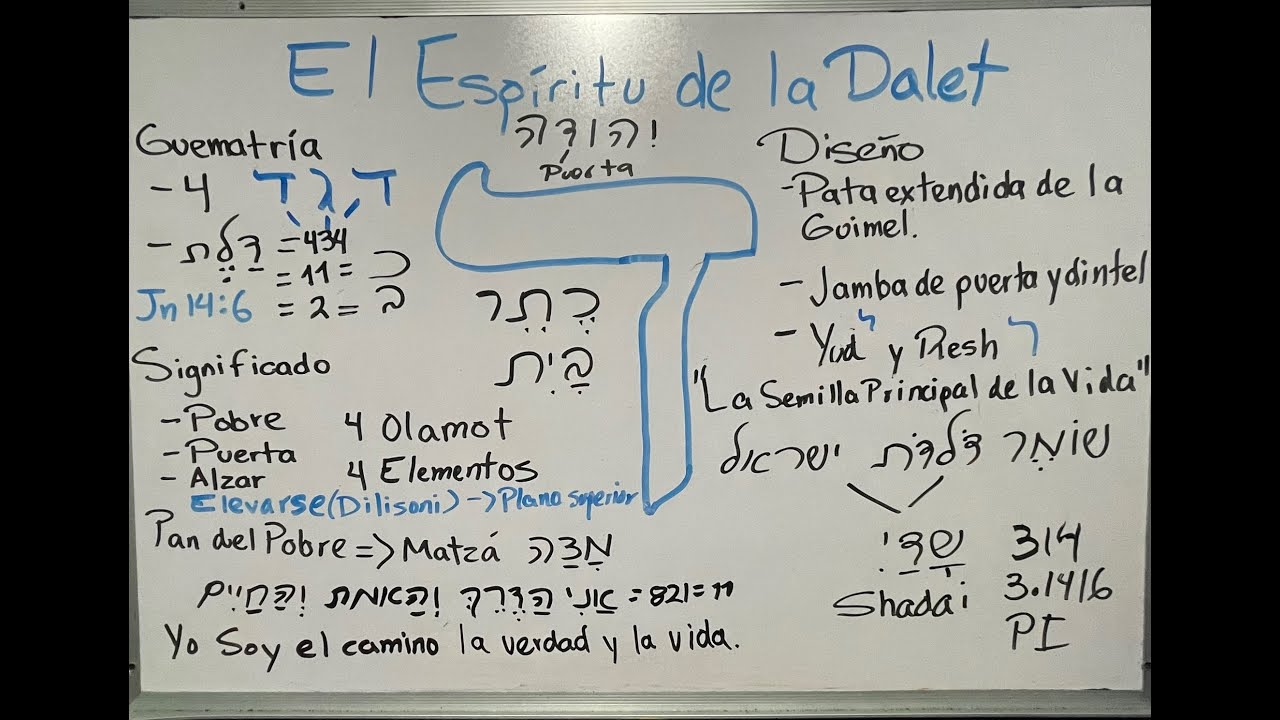 El Espíritu de la Dalet
יהודה
Puerta
Guematría
- 4 ד ג ד
- דַלֶת = 434
= 11 = כ
Jn 14:6 = 2 = ב
כֶתֶר
בַּיִת
Significado
- Pobre
- Puerta
- Alzar
4 Olamot
4 Elementos
Elevarse (Dilisoni) -> Plano superior
Pan del Pobre => Matzá מַצָּה
אֲנִי הַדֶּרֶךְ וְהַאֱמֶת וְהַחַיִּים = 821 = 11
Yo Soy el camino la verdad y la vida.
Diseño
- Pata extendida de la
Guimel.
- Jamba de puerta y dintel
- Yud י y Resh ר
"La Semilla Principal de la Vida"
שׁוֹמֵר דלדת ישראל
שַׁדַּי 314
Shadai 3.1416
PI